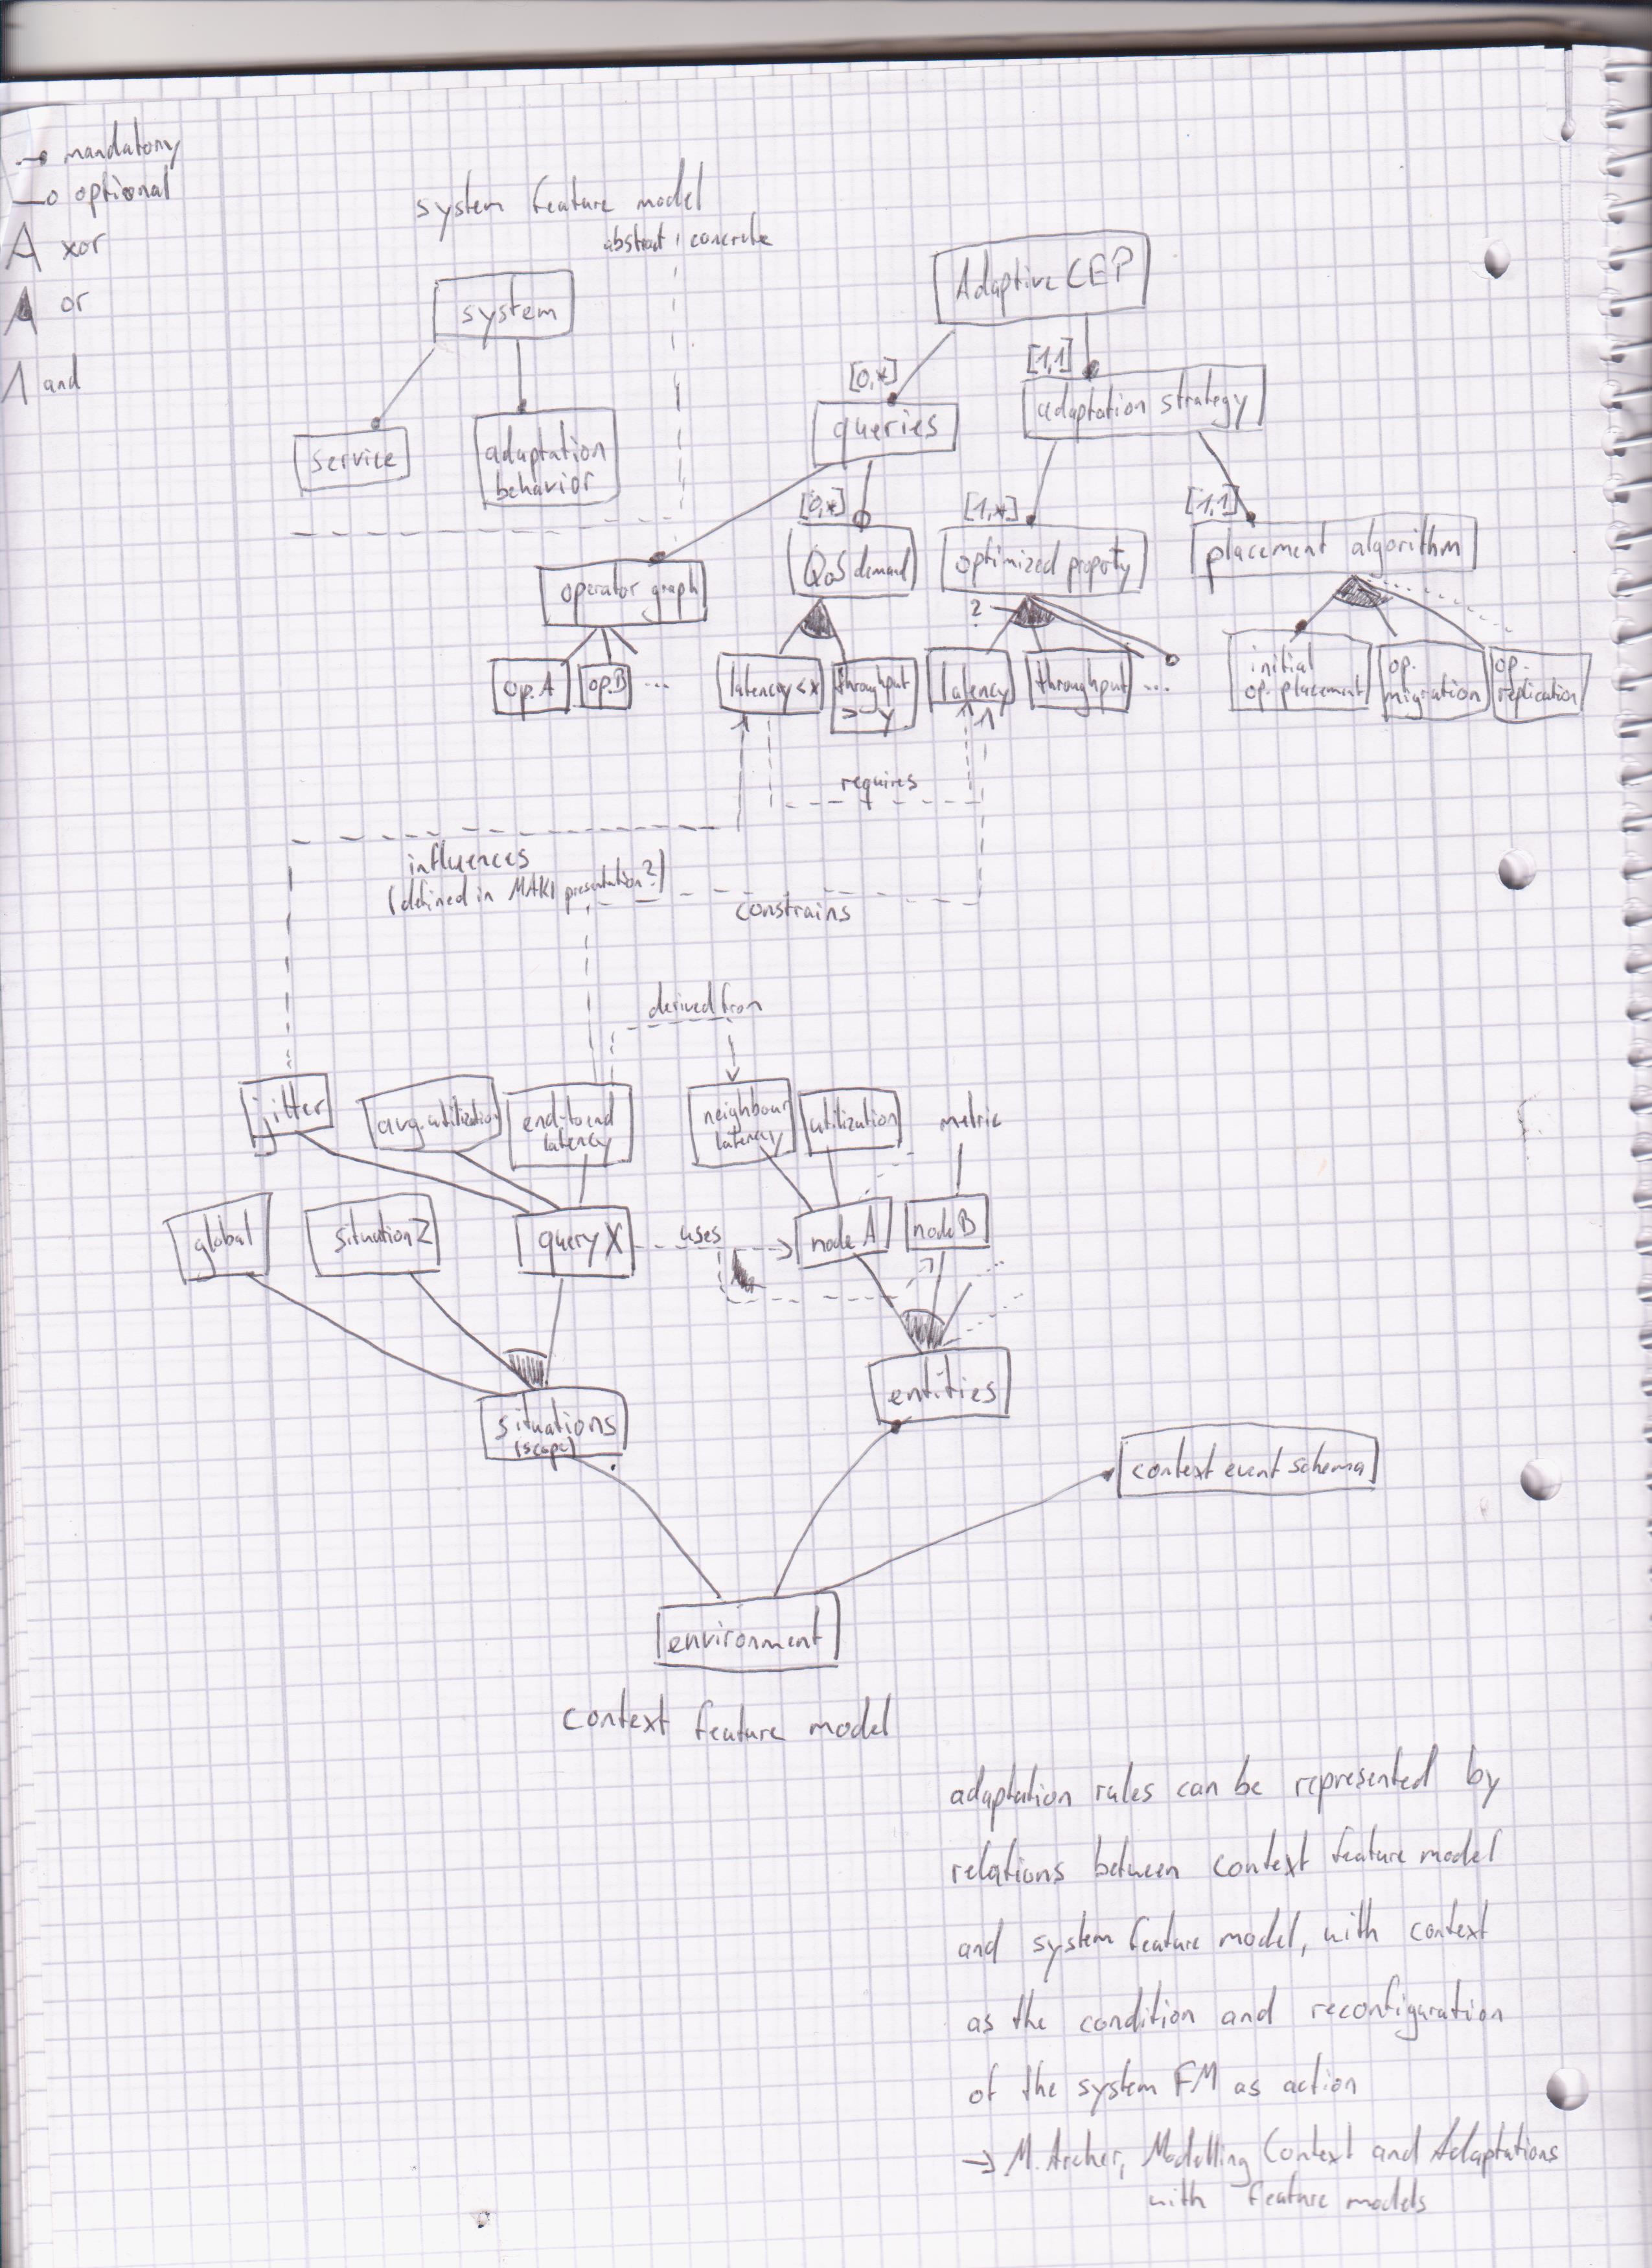 mandatory
optional
xor
or
and
system feature model
abstract concrete
system
service
adaptation
behavior
Adaptive CEP
[0,*]
[1,1]
queries
adaptation strategy
[0,*]
[1,*]
[1,1]
operator graph
QoS demand
optimized property
placement algorithm
op. A
op. B
...
latency < x
throughput
> y
?
latency
throughput
...
initial
op. placement
op.
migration
op.
replication
requires
influences
(defined in MAKI presentation?)
constrains
derived from
jitter
avg. utilization
end-to-end
latency
neighbour
latency
utilization
metric
global
situation 2
query X
uses
node A
node B
situations
(scope)
entities
context event schema
environment
Context feature model
adaptation rules can be represented by
relations between context feature model
and system feature model, with context
as the condition and reconfiguration
of the system FM as action
→ M. Archer, Modelling Context and Adaptations
with feature models